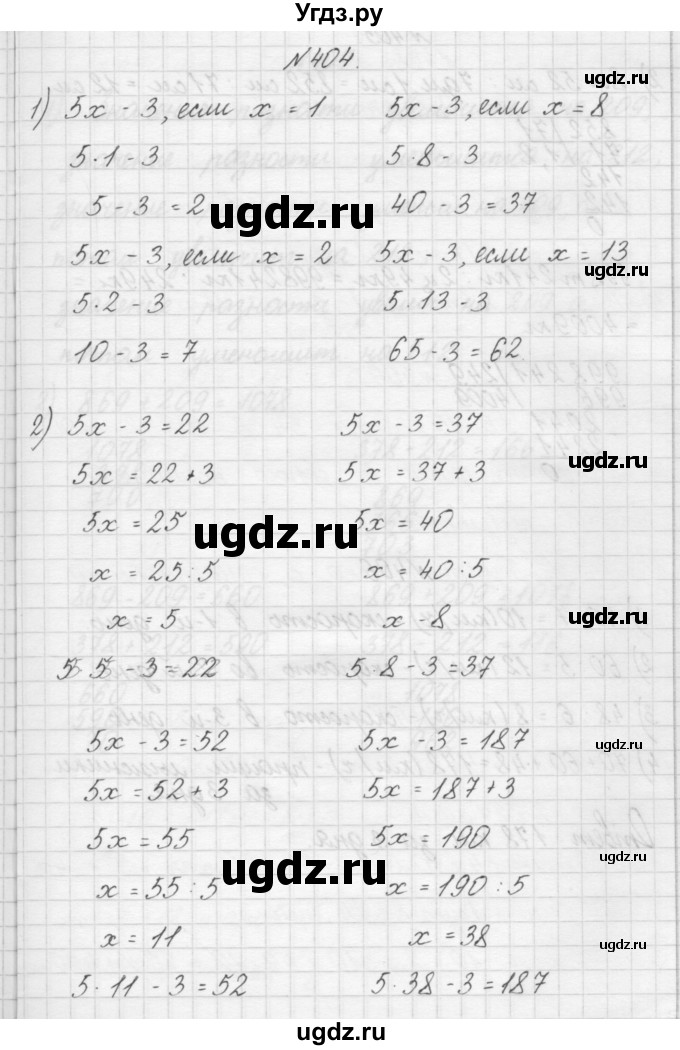 Угдз.ру
№404.
ugdz.ru
1) 5x - 3, если x = 1    5x - 3, если x = 8
5·1 - 3    5·8 - 3
ugdz.ru
5 - 3 = 2    40 - 3 = 37
ugdz.ru
5x - 3, если x = 2    5x - 3, если x = 13
ugdz.ru
5·2 - 3    5·13 - 3
10 - 3 = 7    65 - 3 = 62
2) 5x - 3 = 22    5x - 3 = 37
ugdz.ru
5x = 22 + 3    5x = 37 + 3
5x = 25    5x = 40
ugdz.ru
x = 25:5    x = 40:5
x = 5    x - 8
ugdz.ru
5 5 - 3 = 22    5·8 - 3 = 37
5x - 3 = 52    5x - 3 = 187
ugdz.ru
5x = 52 + 3    5x = 187 + 3
5x = 55    5x = 190
ugdz.ru
ugdz.ru
x = 55:5    x = 190:5
x = 11    x = 38
ugdz.ru
5·11 - 3 = 52    5·38 - 3 = 187
ugdz.ru